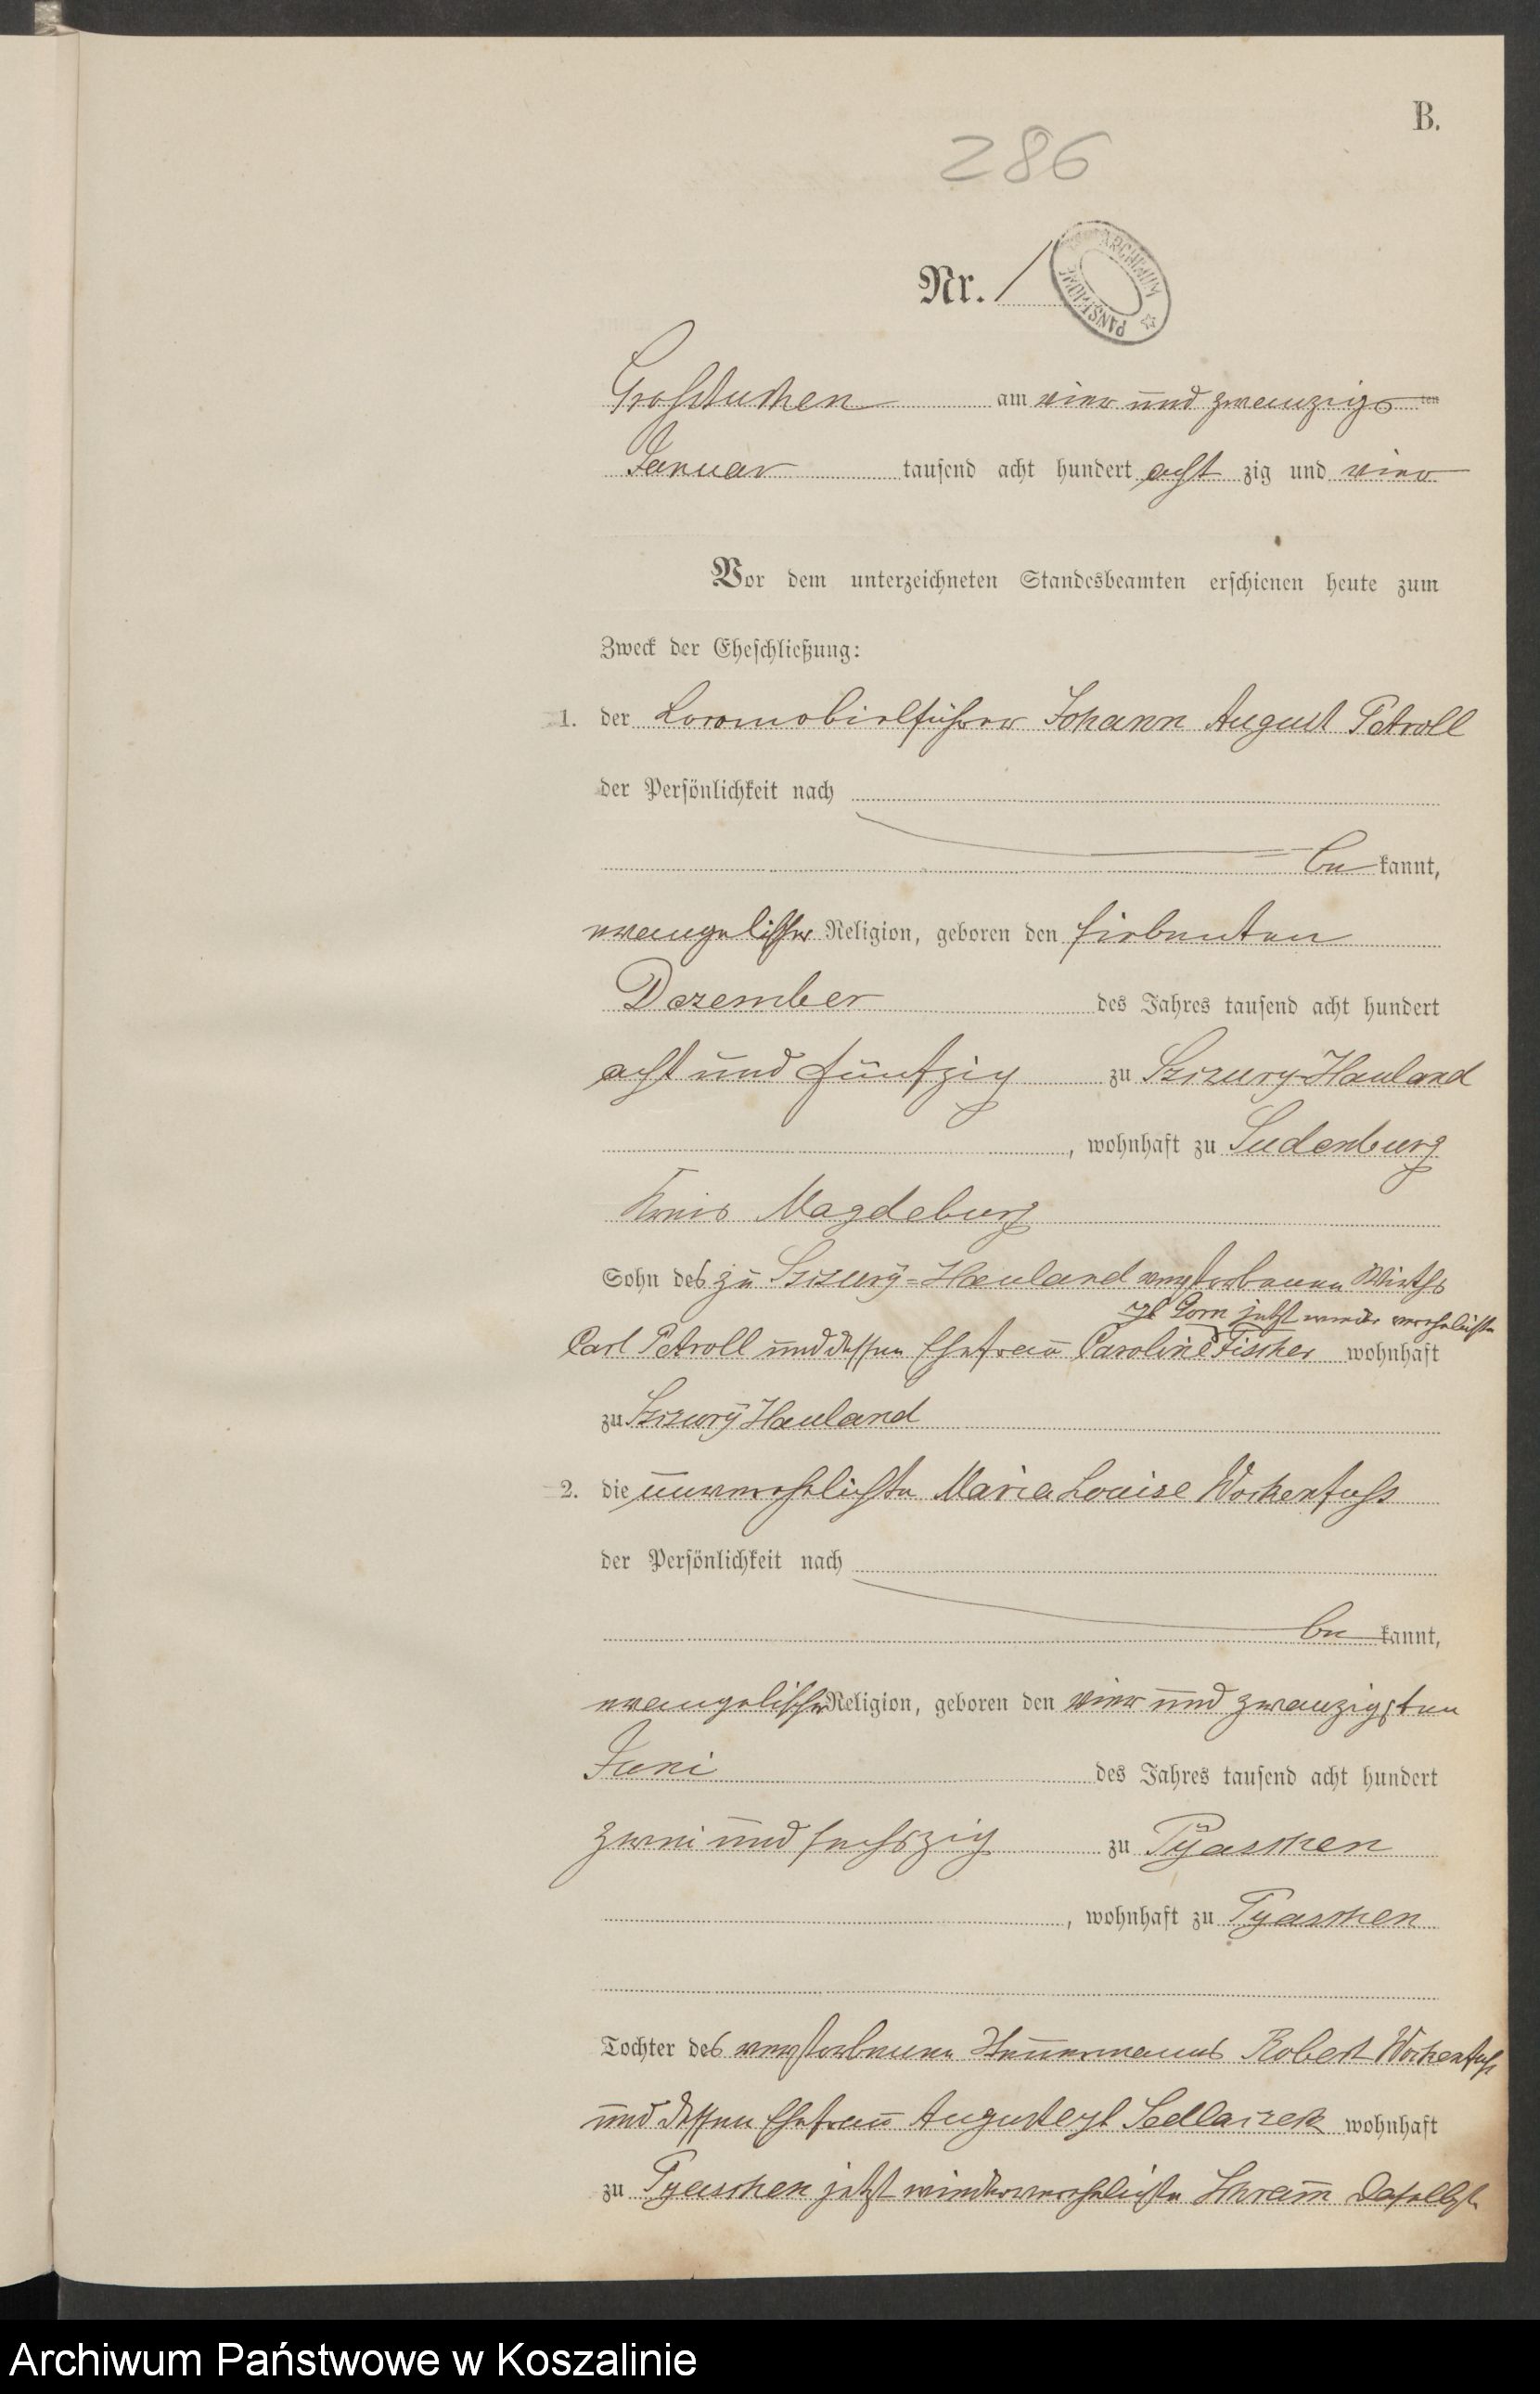 B.
286
Nr. 1
ARCHIWUM PAŃSTWOWE
Großtuchen am vier und zwanzigs ten
Januar tausend acht hundert acht zig und vier
Vor dem unterzeichneten Standesbeamten erschienen heute zum
Zweck der Eheschließung:
1. der Locomobielführer Johann August Petroll
der Persönlichkeit nach
be kannt,
evangelischer Religion, geboren den siebenten
Dezember des Jahres tausend acht hundert
acht und fünfzig zu Hauland
, wohnhaft zu Sudenburg
Kreis Magdeburg
Sohn des zu Hauland verstorbenen Wirths
jetzt wieder verehelichte
Carl Petroll und dessen Ehefrau Caroline Fischer wohnhaft
zu Hauland
2. die unverehelichte Maria Louise Wockenfuß
der Persönlichkeit nach
be kannt,
evangelischer Religion, geboren den vier und zwanzigsten
Juni des Jahres tausend acht hundert
zwei und sechszig zu Pyaschen
, wohnhaft zu Pyaschen
Tochter des verstorbenen Robert Wockenfuß
und dessen Ehefrau Auguste Sedlaczek wohnhaft
zu Pyaschen jetzt wiederverehelichte Schram̅ daselbst
Archiwum Państwowe w Koszalinie